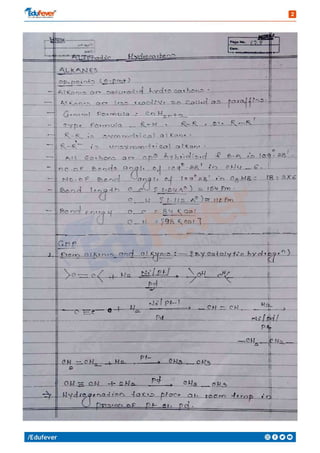 Edufever
2
Page No. 127
Date
Aliphatic Hydrocarbons
ALKANES
- Alkanes are saturated hydrocarbons.
- Alkanes are less reactive so called as paraffins.
- General Formula : CnH2n+2
- Type Formula R-H, R-R, or R-R'
- R-R is symmetrical alkane.
- R-R' is unsymmetrical alkane.
- All carbons are sp3 hybridised & B.A is 109°28'.
- No. of Bonds Angle of 109°28' in CH4 = 6.
- No. of Bond Angle of 109°28' in
- Bond length C-C = 154 pm.
C-H
- Bond energy C-C = 84 kcal
C-H = [98 kcal]
GMP
1. From alkenes and alkynes :- (By catalytic hydrogen)
>C=C< + H2 Ni/Pt/ Pd >CH
-C≡C- + H2 Ni/Pt/ Pd -CH=CH- H2 Ni/Pd/ Pt
-CH2-CH2-
CH2=CH2 + H2 Pt CH3-CH3
CH≡CH + 2H2 Pd CH3-CH3
→ Hydrogenation takes place at room temp in
presence of Pt or Pd.
/Edufever